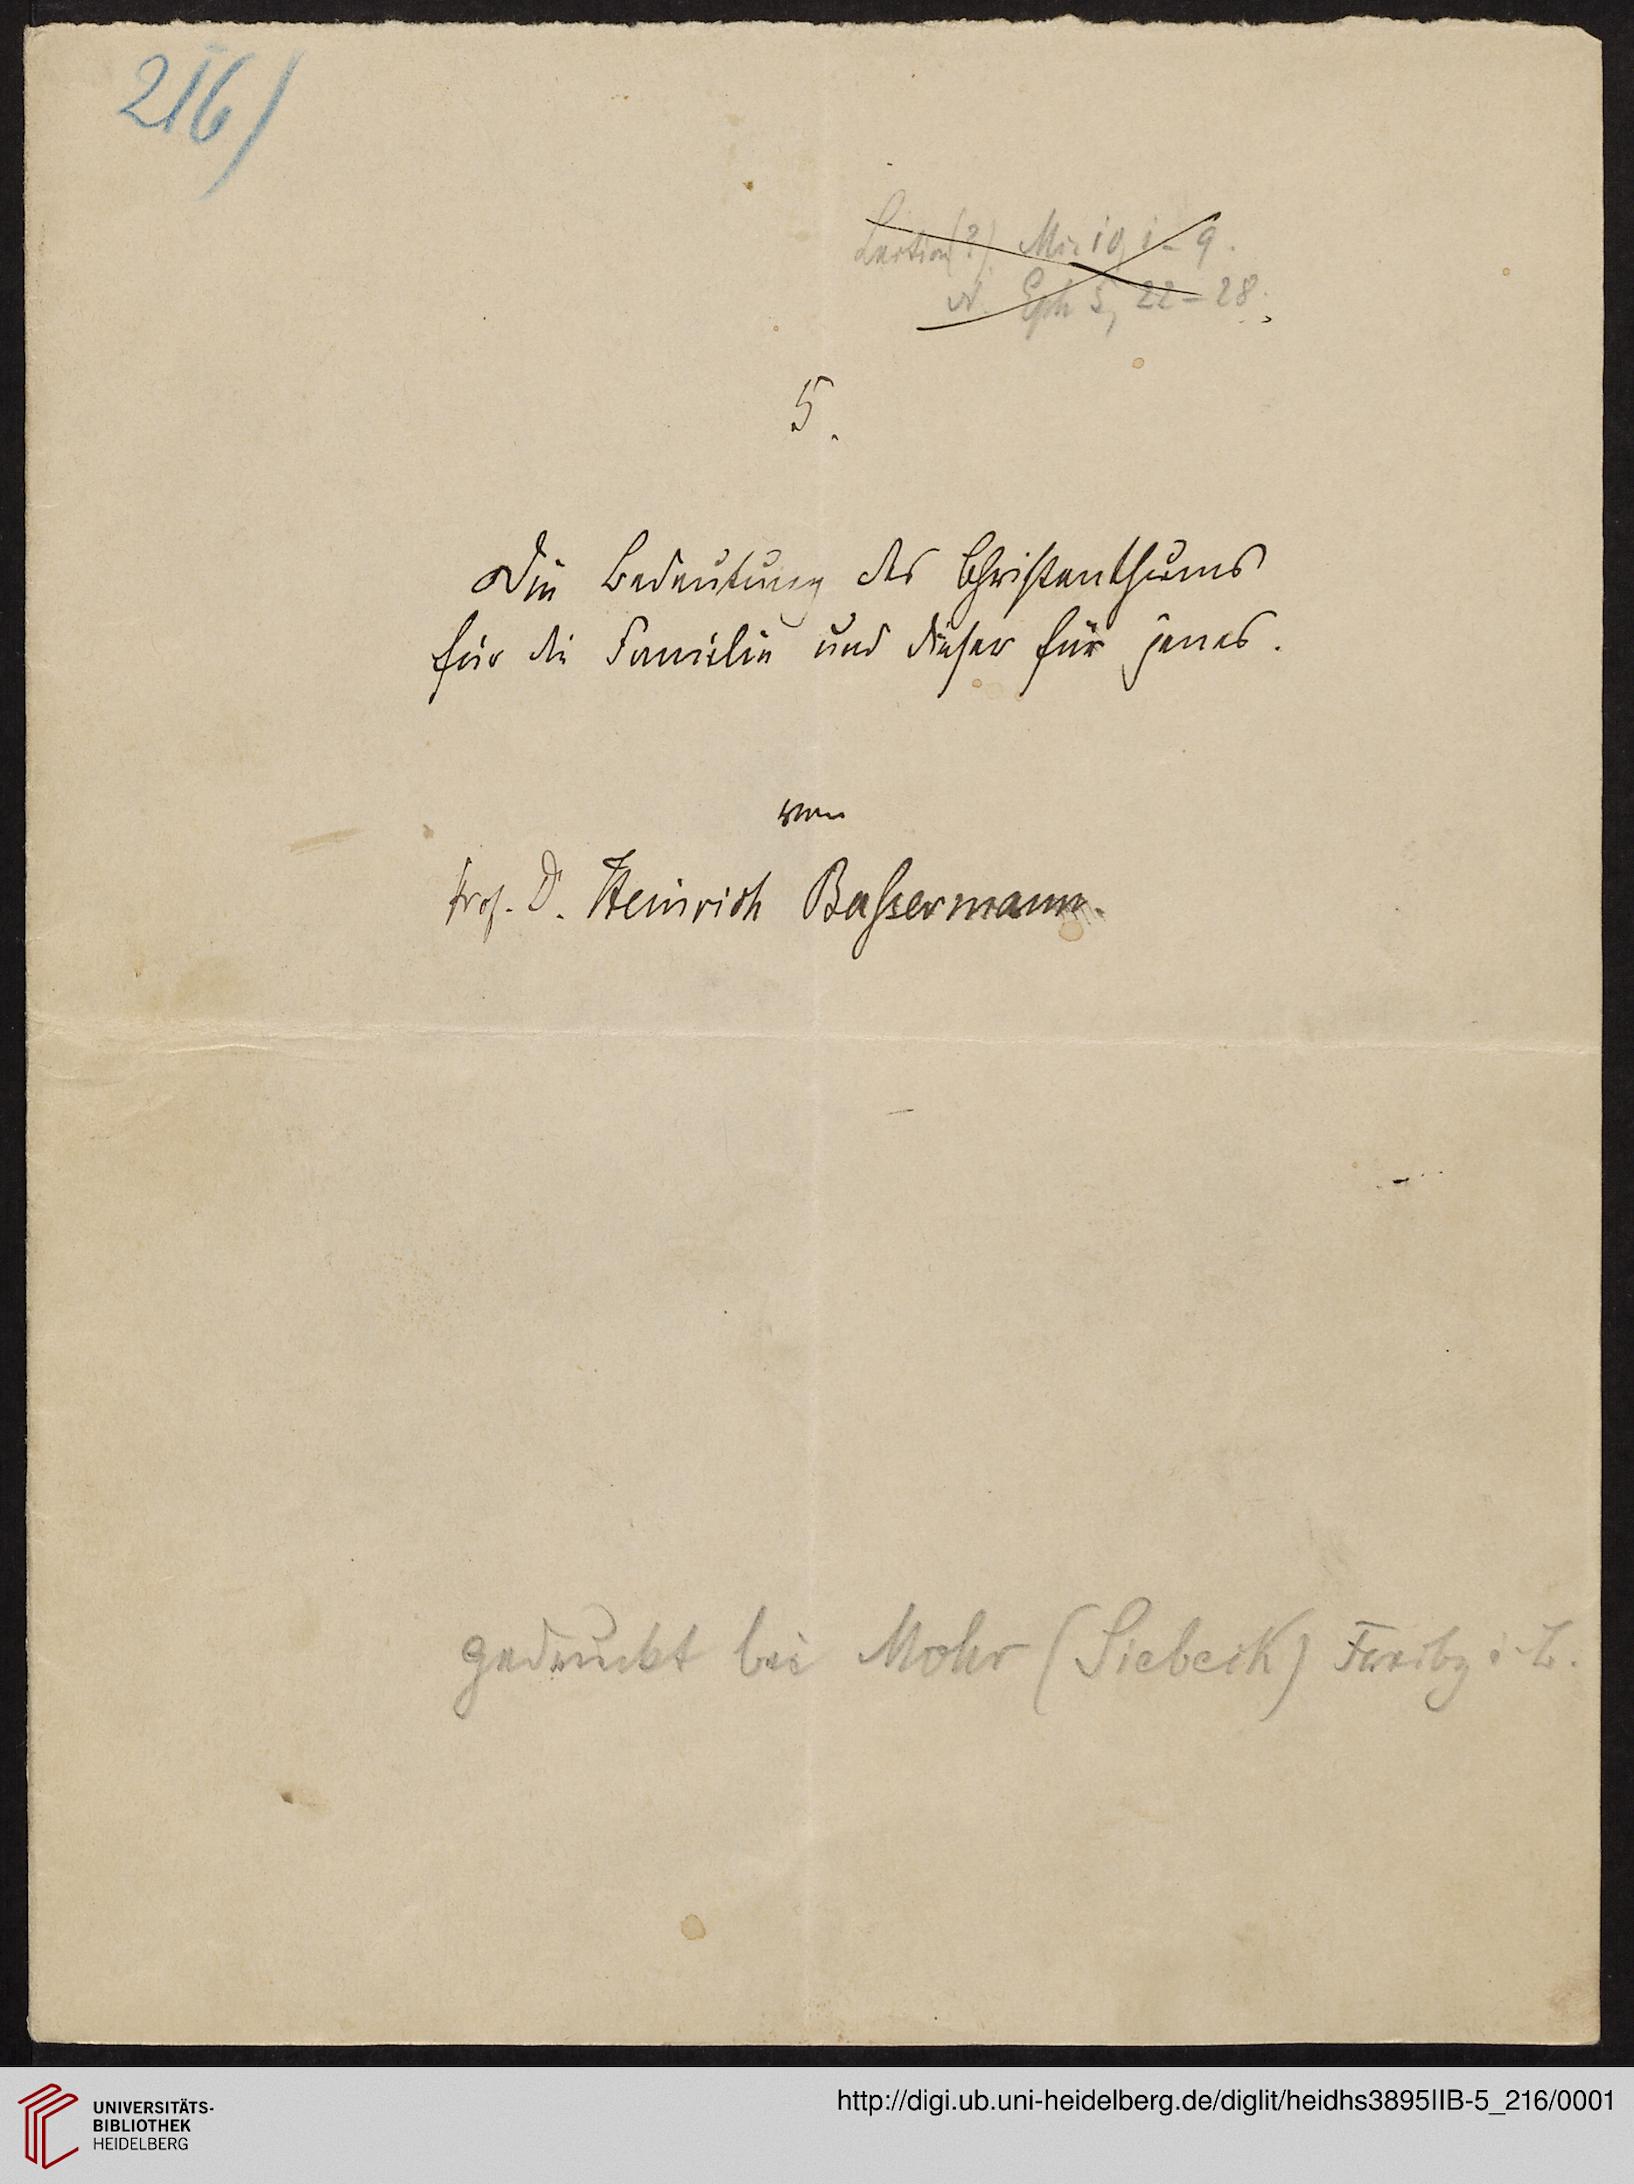 216)
Lection(?) Mr. 10, 1-9.
Eph 5, 22-28.
5.
Die Bedeutung des Christenthums
für die Familie und dieser für jenes.
von
Prof. D. Heinrich Bassermann.
gedruckt bei Mohr (Siebeck) Freibg i. B.
UNIVERSITÄTS-
BIBLIOTHEK
HEIDELBERG
http://digi.ub.uni-heidelberg.de/diglit/heidhs3895IIB-5_216/0001